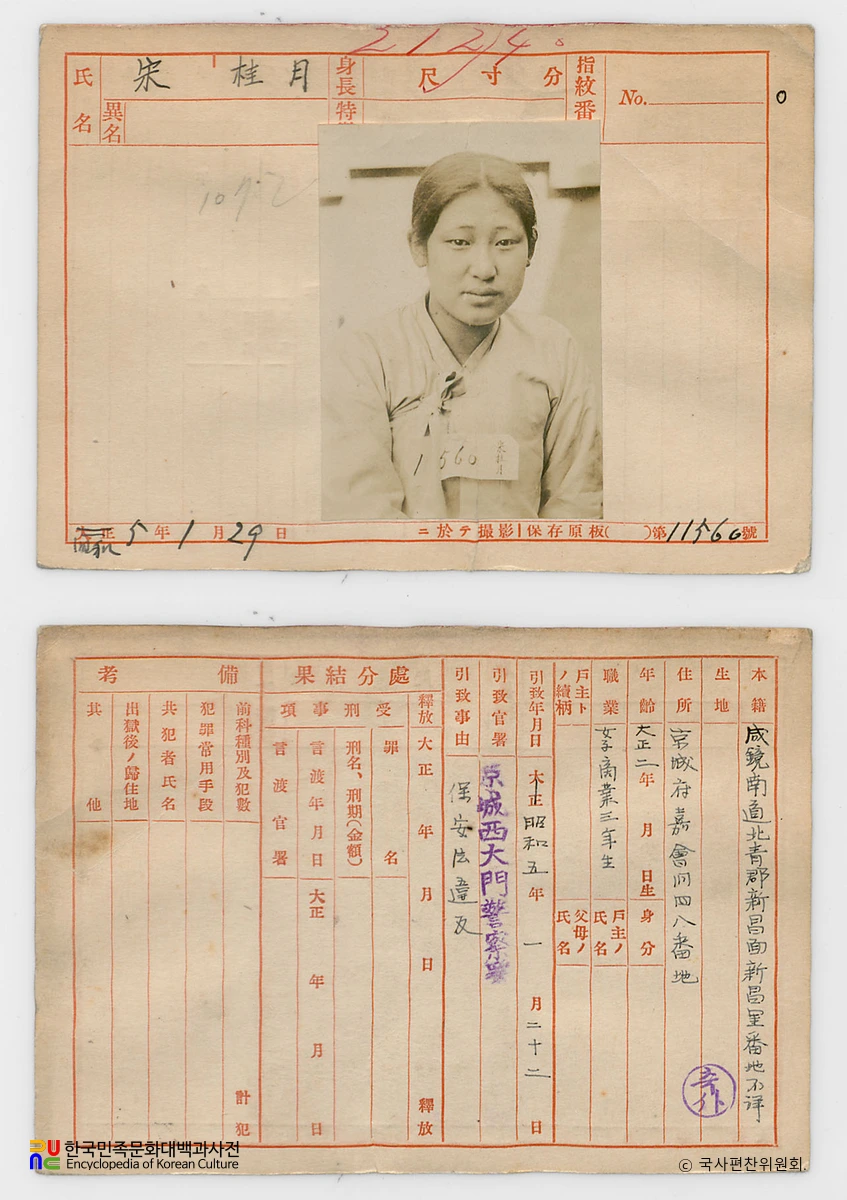 2124.
氏名 宋桂月
異名
身長 尺寸分
特
指紋番
No.
0
11560
宋桂月
大正 昭和 5年1月29日
ニ於テ撮影 保存原板( )第11560號
本籍 咸鏡南道北青郡新昌面新昌里番地不詳
生地
住所 京城府嘉會洞四八番地
年齡 大正二年 月 日生
身分
職業 女子商業三年生
戶主ノ氏名
戶主トノ續柄
父母ノ氏名
引致年月日 大正 昭和五年一月二十二日
引致官署 京城西大門警察署
引致事由 保安法違反
處分結果
釋放 大正 年 月 日 釋放
受刑事項
罪名
刑名、刑期(金額)
言渡年月日 大正 年 月 日
言渡官署
備考
前科種別及犯數 計 犯
犯罪常用手段
共犯者氏名
出獄後ノ歸住地
其他
한국민족문화대백과사전
Encyclopedia of Korean Culture
© 국사편찬위원회